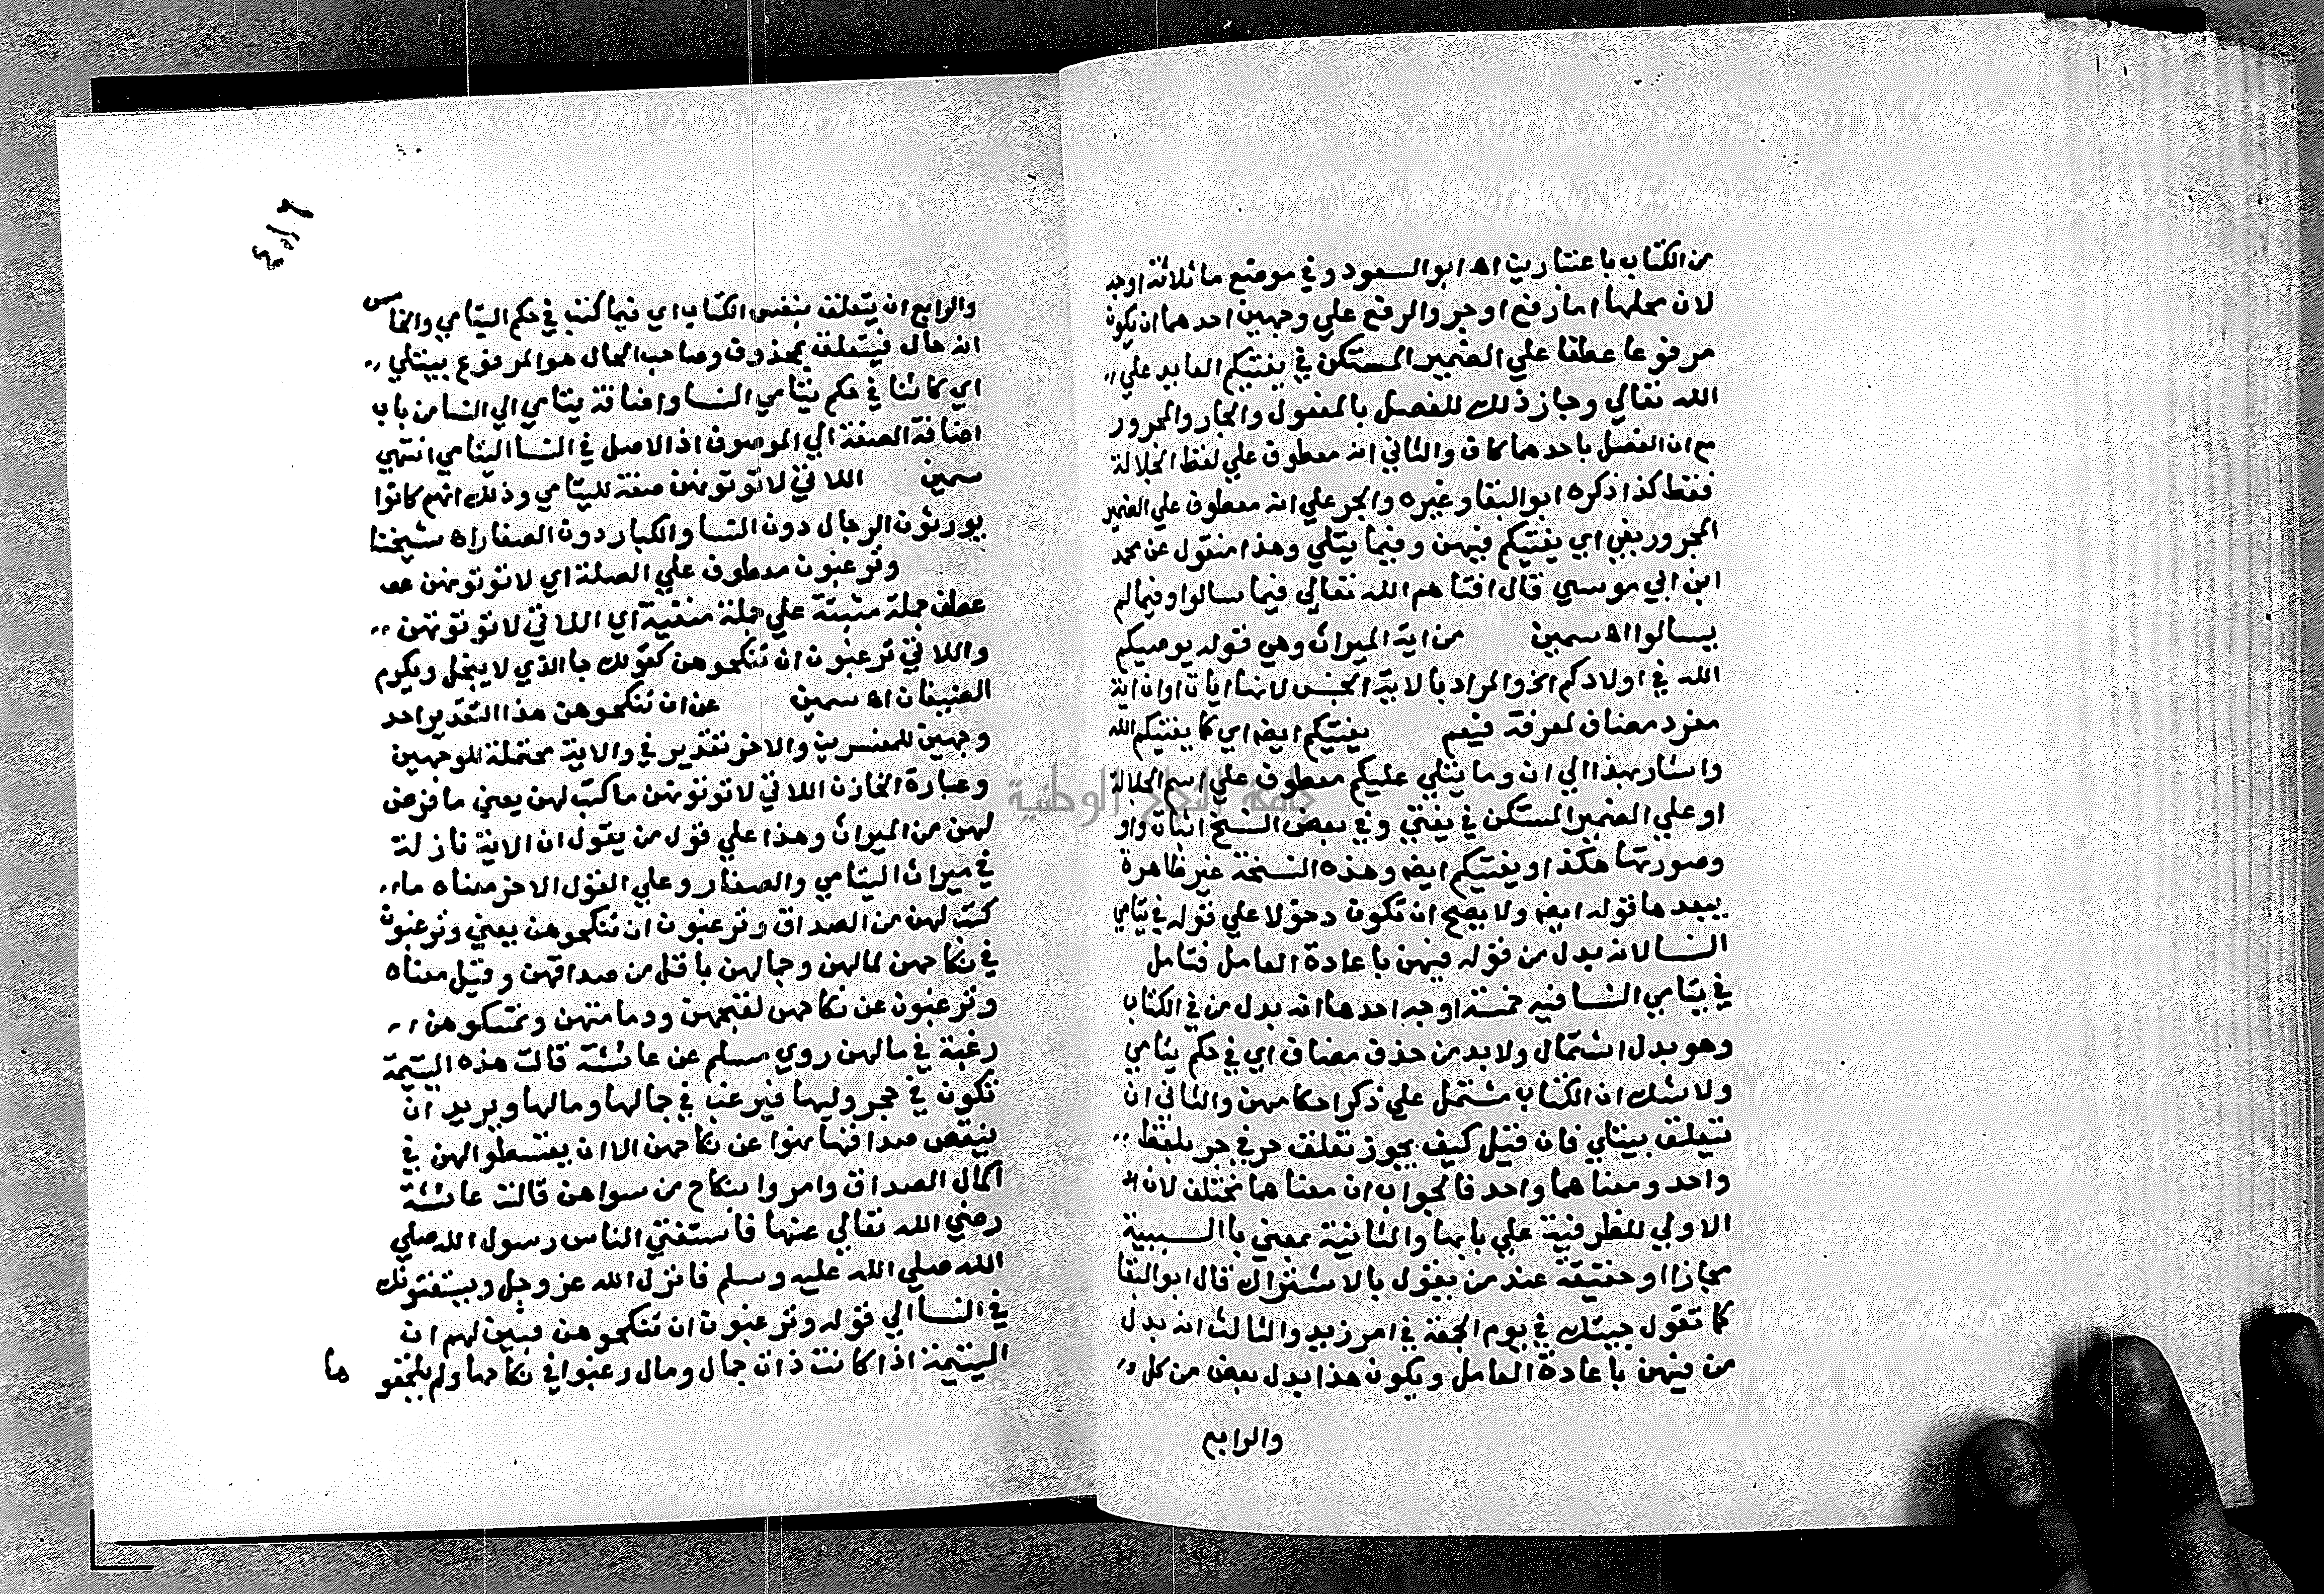 من الكتاب باعتبارين اه ابو السعود وفي موضع ما ثلاثة اوجه
لان محلها اما رفع او جر والرفع علي وجهين احدهما ان يكون
مرفوعا عطفا علي الضمير المستكن في يفتيكم العايد علي
الله تعالي وجاز ذلك للفصل بالمفعول والجار والمجرور
مع ان الفصل باحدهما كاف والثاني انه معطوف علي لفظ الجلالة
فقط كذا ذكره ابو البقا وغيره والجر علي انه معطوف علي الضمير
المجرور بفي اي يفتيكم فيهن وفيما يتلي وهذا منقول عن محمد
ابن ابي موسي قال افتاهم الله تعالي فيما سالوا وفيما لم
يسالوا اه سمين من اية الميراث وهي قوله يوصيكم
الله في اولادكم الخ والمراد بالاية الجنس لانها ايات او ان اية
مفرد مضاف لمعرفة فيعم يفتيكم ايضا اي كما يفتيكم الله
واشار بهذا الي ان وما يتلي عليكم معطوف علي اسم الجلالة
او علي الضمير المستكن في يفتي وفي بعض النسخ اثبات واو
وصورتها هكذا ويفتيكم ايضا وهذه النسخة غير ظاهرة
يبعدها قوله ايضا ولا يصح ان تكون دخولا علي قوله في يتامي
النسا لانه بدل من قوله فيهن باعادة العامل فتامل
في يتامي النسا فيه خمسة اوجه احدها انه بدل من في الكتاب
وهو بدل اشتمال ولا بد من حذف مضاف اي في حكم يتامي
ولا شك ان الكتاب مشتمل علي ذكر احكامهن والثاني ان
تتعلق بيتلي فان قيل كيف يجوز تعلق حرفي جر بلفظ
واحد ومعناهما واحد فالجواب ان معناهما مختلف لان
الاولي للظرفية علي بابها والثانية بمعني با السببية
مجازا او حقيقة عند من يقول بالاشتراك قال ابو البقا
كما تقول جيتك في يوم الجمعة في امر زيد والثالث انه بدل
من فيهن باعادة العامل ويكون هذا بدل بعض من كل
والرابع
والرابع ان يتعلق بنفس الكتاب اي فيما كتب في حكم اليتامي والخامس
انه حال فيتعلق بمحذوف وصاحب الحال هو المرفوع بيتلي
اي كائنا في حكم يتامي النسا واضافة يتامي الي النسا من باب
اضافة الصفة الي الموصوف اذ الاصل في النسا اليتامي انتهي
سمين اللاتي لا توتونهن صفة لليتامي وذلك انهم كانوا
يورثون الرجال دون النسا والكبار دون الصغار اه شيخنا
وترغبون معطوف علي الصلة اي لا توتونهن عطف
عطف جملة مثبتة علي جملة منفية اي اللاتي لا توتونهن
واللاتي ترغبون ان تنكحوهن كقولك جا الذي لا يبخل ويكرم
الضيفان اه سمين عن ان تنكحوهن هذا التقدير احد
وجهين للمفسرين والاخر تقدير في والاية محتملة للوجهين
وعبارة الخازن اللاتي لا توتونهن ما كتب لهن يعني ما فرض
لهن من الميراث وهذا علي قول من يقول ان الاية نازلة
في ميراث اليتامي والصغار وعلي القول الاخر معناه ما
كتب لهن من الصداق وترغبون ان تنكحوهن يعني وترغبون
في نكاحهن لمالهن وجمالهن باقل من صداقهن وقيل معناه
وترغبون عن نكاحهن لقبحهن ودمامتهن وتمسكوهن
رغبة في مالهن روي مسلم عن عائشة قالت هذه اليتيمة
تكون في حجر وليها فيرغب في جمالها ومالها ويريد ان
ينقص صداقها فنهوا عن نكاحهن الا ان يقسطوا لهن في
اكمال الصداق وامروا بنكاح من سواهن قالت عائشة
رضي الله تعالي عنها فاستفتي الناس رسول الله صلي
الله صلي الله عليه وسلم فانزل الله عز وجل ويستفتونك
في النسا الي قوله وترغبون ان تنكحوهن فبين لهم ان
اليتيمة اذا كانت ذات جمال ومال رغبوا في نكاحها ولم يلحقو
ها
جامعة النجاح الوطنية